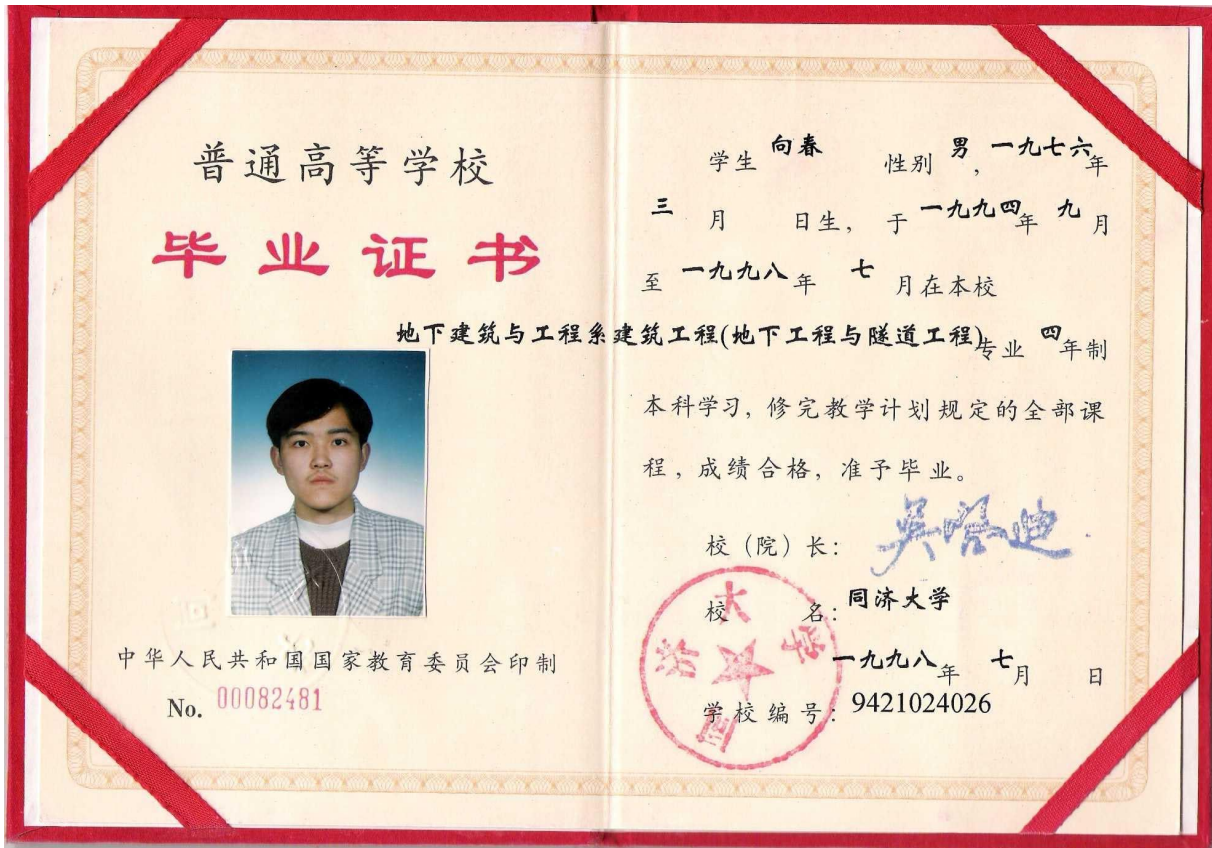 普通高等学校
毕业证书
中华人民共和国国家教育委员会印制
No. 00082481
学生 向春 性别 男, 一九七六年
三 月 日生, 于 一九九四年 九月
至 一九九八年 七 月在本校
地下建筑与工程系建筑工程(地下工程与隧道工程)专业 四年制
本科学习, 修完教学计划规定的全部课
程, 成绩合格, 准予毕业。
校(院)长: 吴启迪
校 名: 同济大学
一九九八年 七月 日
学校编号: 9421024026
同济大学